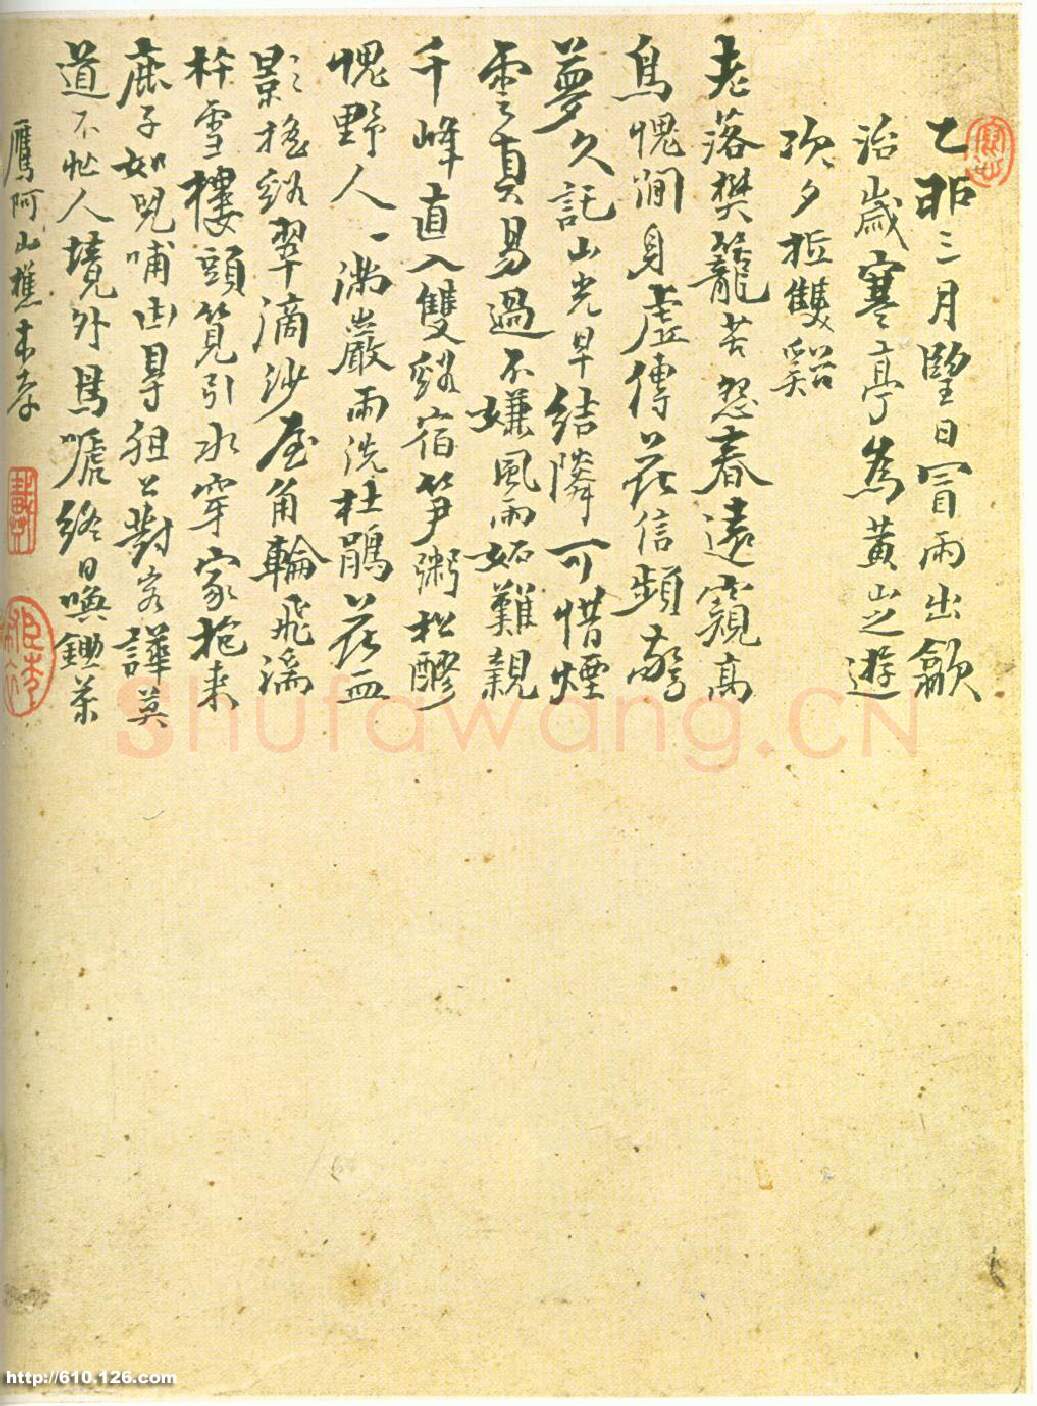 乙卯三月朢日冒雨出歙
治歲寒亭為黃山之遊
次夕抵雙谿
老落樊籠苦怨春遠窺高
鳥愧閒身虛傳花信頻驚
夢久託山光早結隣可惜煙
雲真易過不嫌風雨妬難親
千峰直入雙谿宿笋粥松醪
愧野人一滿巖雨洗杜鵑花血
影搖谿翠滴沙屋角輪飛溪
杵雪樓頭筧引水穿家抱来
鹿子如兒哺出導狙公對客譁莫
道不恥人境外馬嘶終日喚鋤茶
鷹阿山樵
Shufawang.CN
http://610.126.com